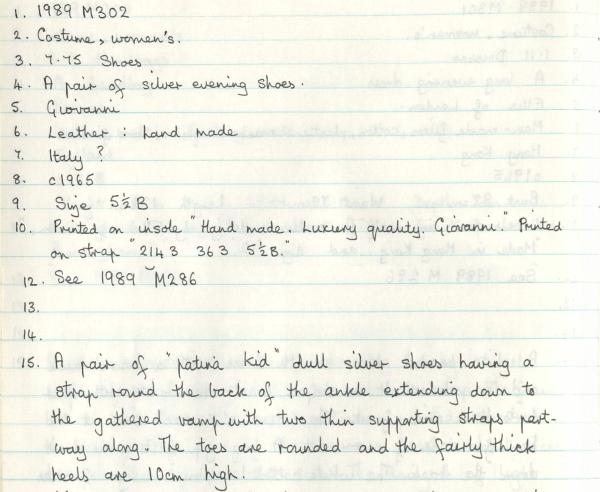 1. 1989 M302
2. Costume, women's.
3. 7.75 Shoes
4. A pair of silver evening shoes.
5. Giovanni
6. Leather : hand made
7. Italy ?
8. c1965
9. Size 5½ B
10. Printed on insole "Hand made. Luxury quality. Giovanni." Printed
on strap "2143 363 5½B."
12. See 1989 M286
13.
14.
15. A pair of "patina kid" dull silver shoes having a
strap round the back of the ankle extending down to
the gathered vamp with two thin supporting straps part-
way along. The toes are rounded and the fairly thick
heels are 10cm high.